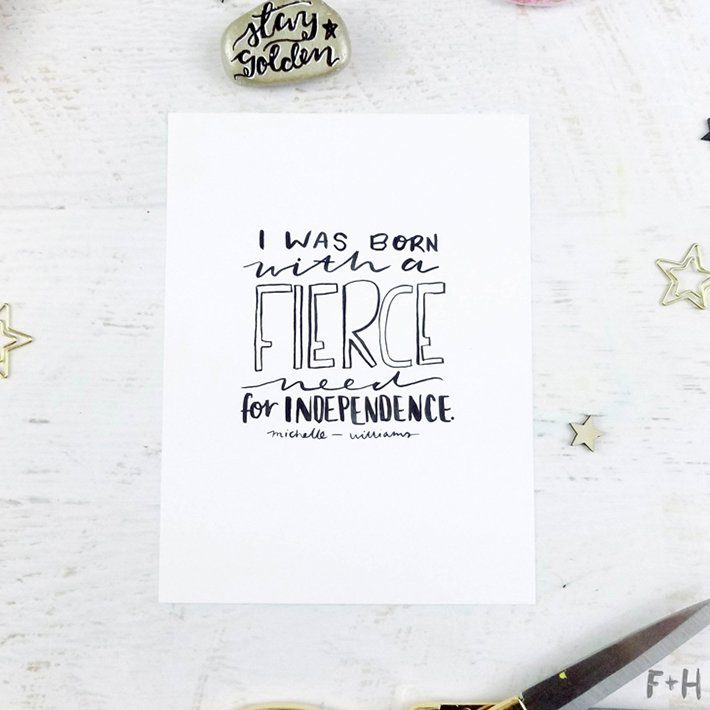 stay
golden
I WAS BORN
with a
FIERCE
need
for INDEPENDENCE.
michelle — williams
F+H